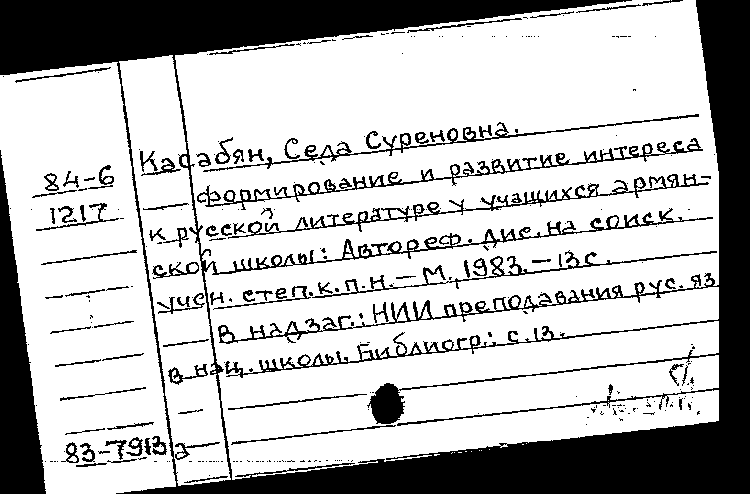 Касабян, Седа Суреновна.
84-6
1217
формирование и развитие интереса
к русской литературе у учащихся армян-
ской школы: Автореф. дис. на соиск.
учен. степ. к.п.н. – М., 1983. – 13 с.
В надзаг.: НИИ преподавания рус. яз
в нац. школы. Библиогр.: с. 13.
83-7913 а